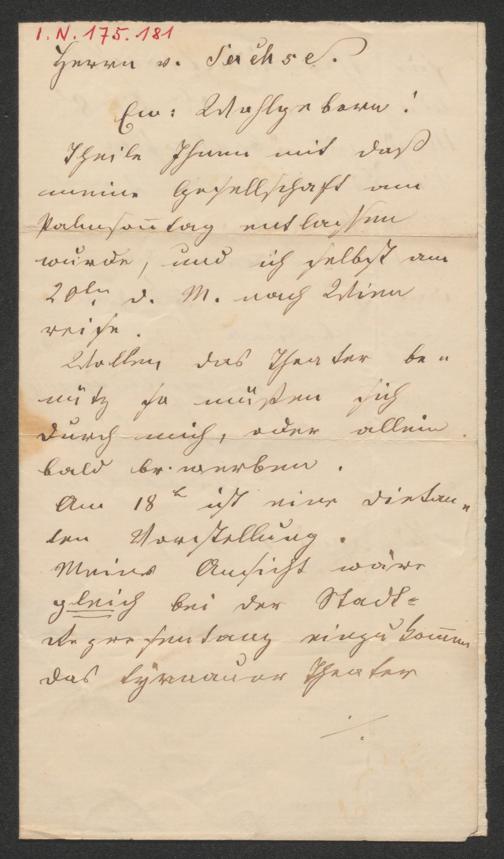 I.N. 175.181
Herrn v. Sachse.
Euer: Wohlgeborn!
Theile Ihnen mit daß
meine Gesellschaft am
Palmsontag entlassen
wurde, und ich selbst am
20ten d. M. nach Wien
reise.
Wollen das Theater be=
nütz so müßen sich
durch mich, oder allein
bald bewerben.
Am 18t ist eine Dietan=
ten Vorstellung.
Meine Ansicht wäre
gleich bei der Stadt=
Representanz einzukommen
das Tyrnauer Theater
./.